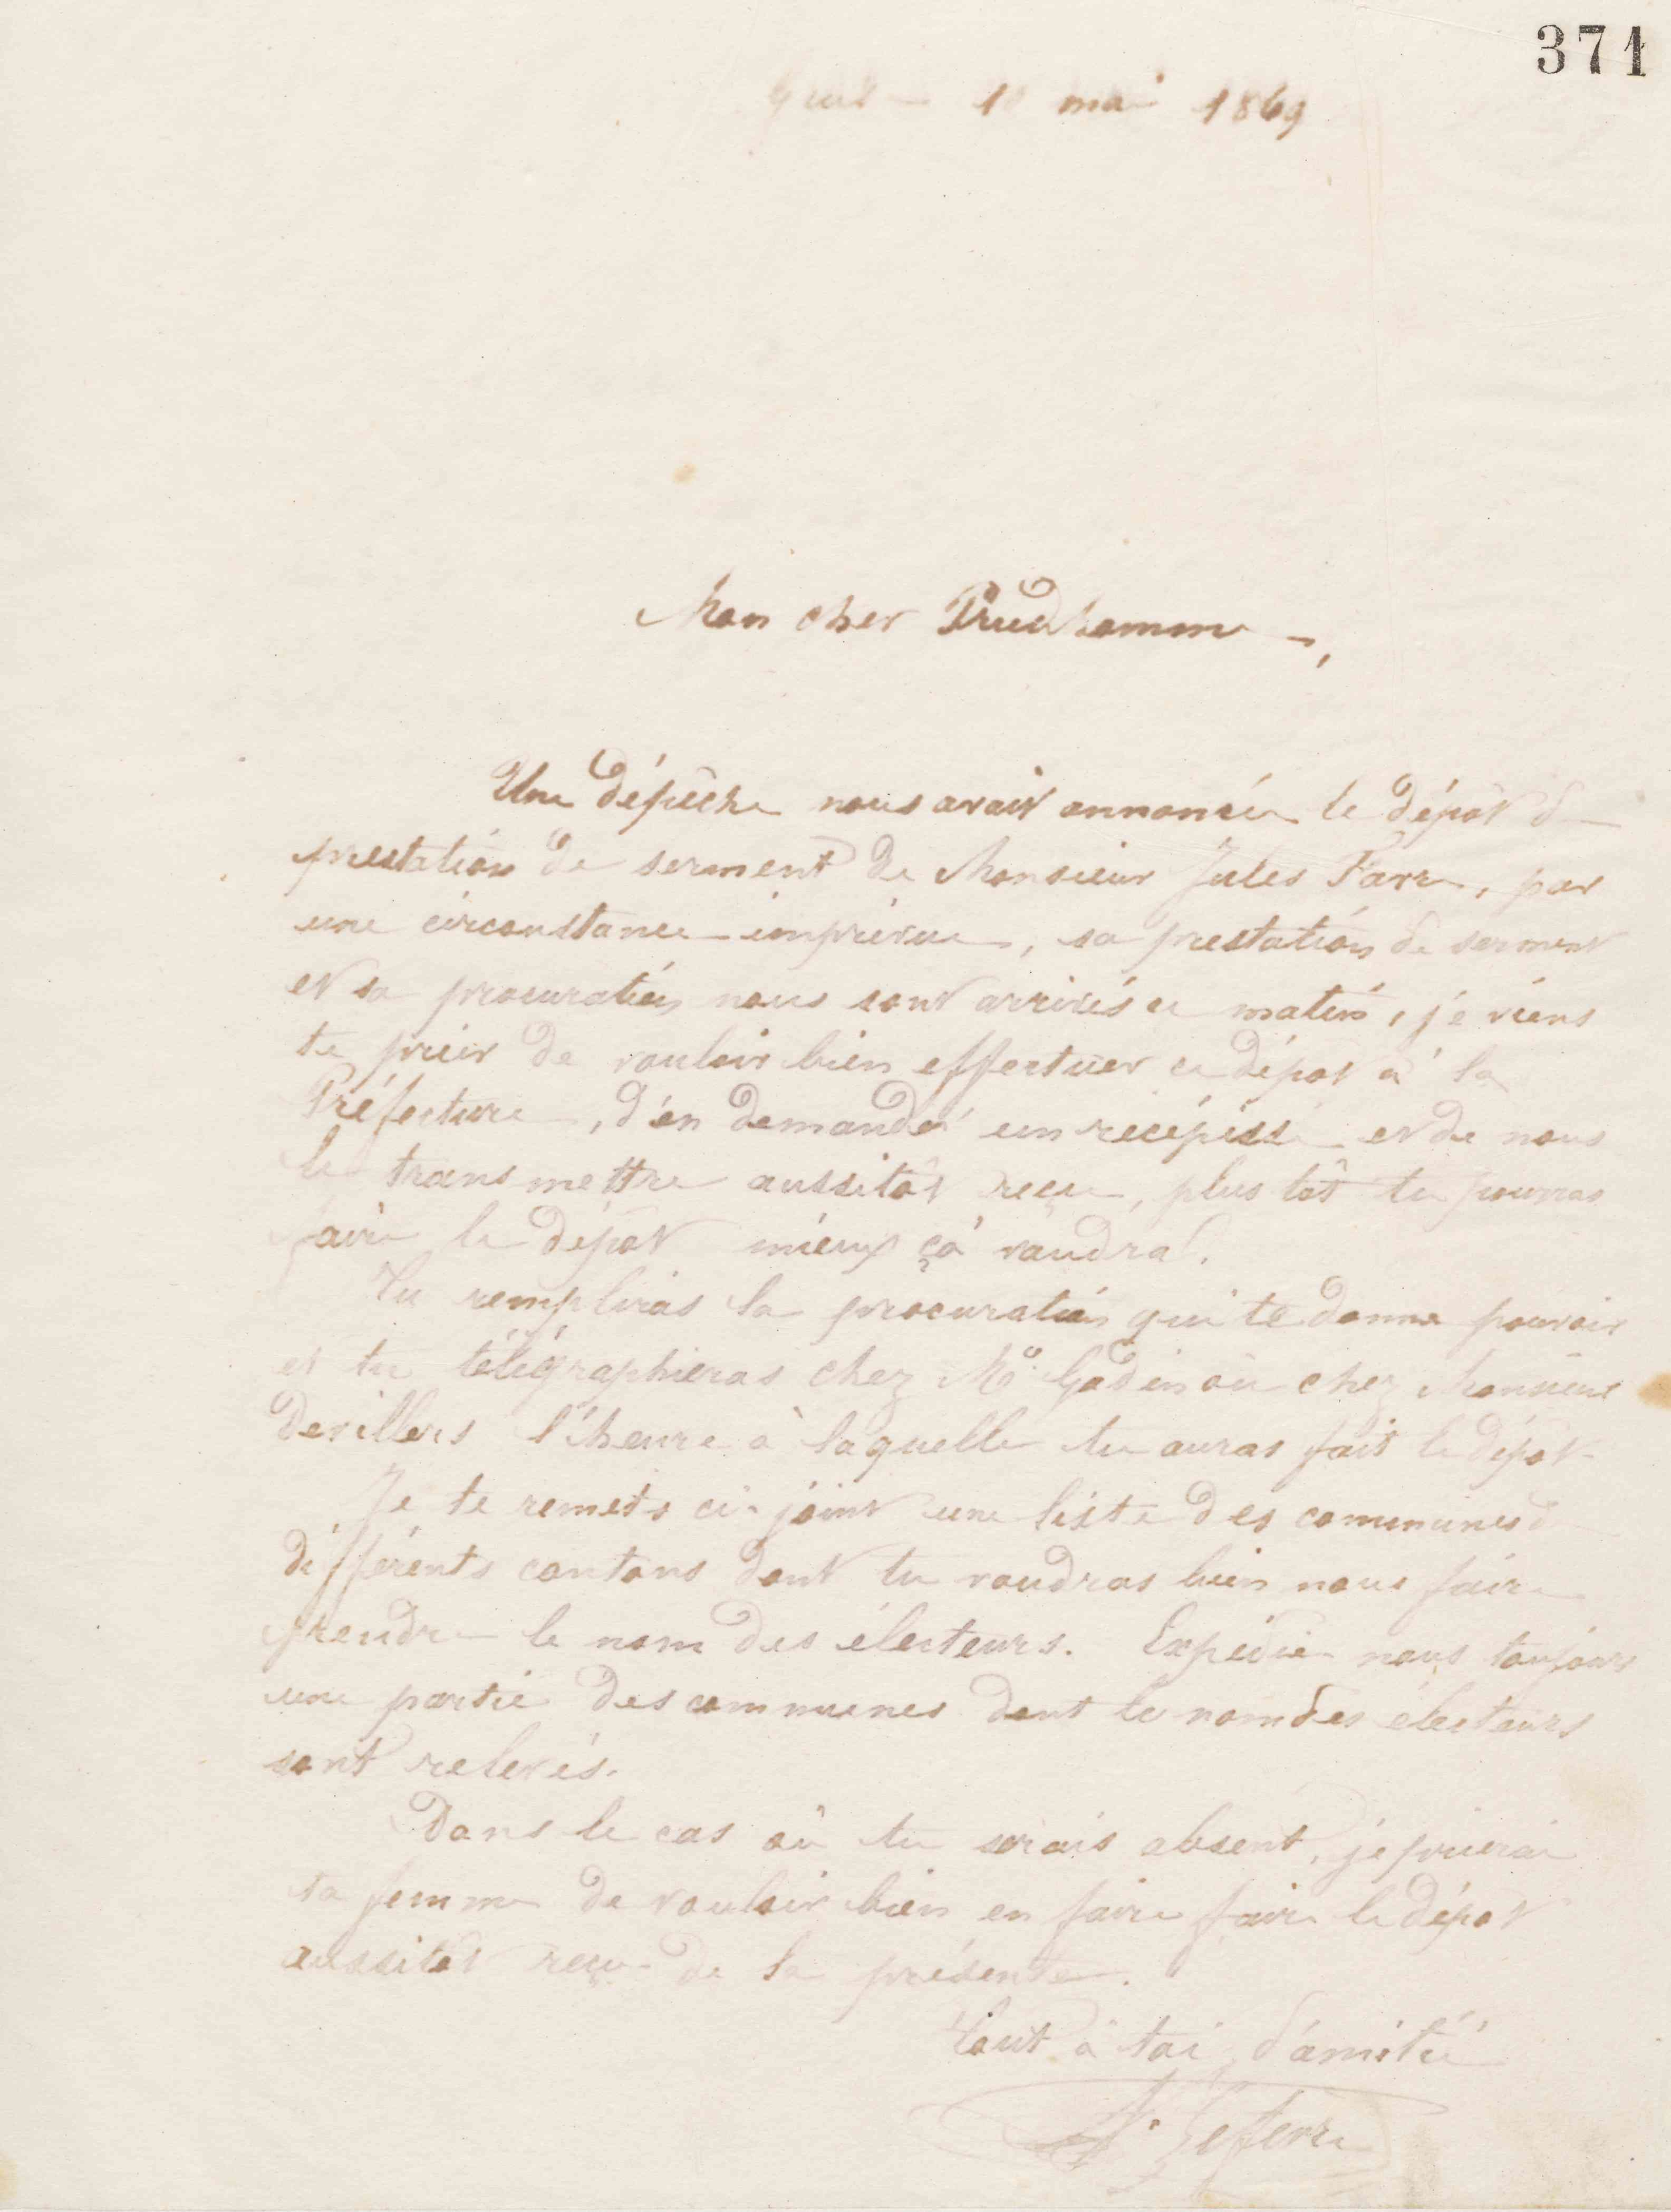 371
Guise 1 mai 1869
Mon cher Prudhomme,
Une dépêche nous avait annoncée le dépôt de
prestation de serment de Monsieur Jules Favre, par
une circonstance imprévue, sa prestation de serment
et sa procuration nous sont arrivés ce matin, je viens
te prier de vouloir bien effectuer ce dépôt à la
Préfecture, d'en demander un récépissé et de nous
le transmettre aussitôt reçu, plus tôt tu pourras
faire le dépôt mieux çà vaudra.
Tu rempliras la procuration qui te donne pouvoir
et tu télégraphieras chez Mr Godin ou chez Monsieur
Devillers l'heure à laquelle tu auras fait le dépôt
Je te remets ci-joint une liste des communes de
différents cantons dont tu voudras bien nous faire
prendre le nom des électeurs. Expédie nous toujours
une partie des communes dont le nom des électeurs
sont relevés.
Dans le cas où tu serais absent, je prierai
ta femme de vouloir bien en faire faire le dépôt
aussitôt reçu de la présente.
Tout à toi d'amitié
Lefevre